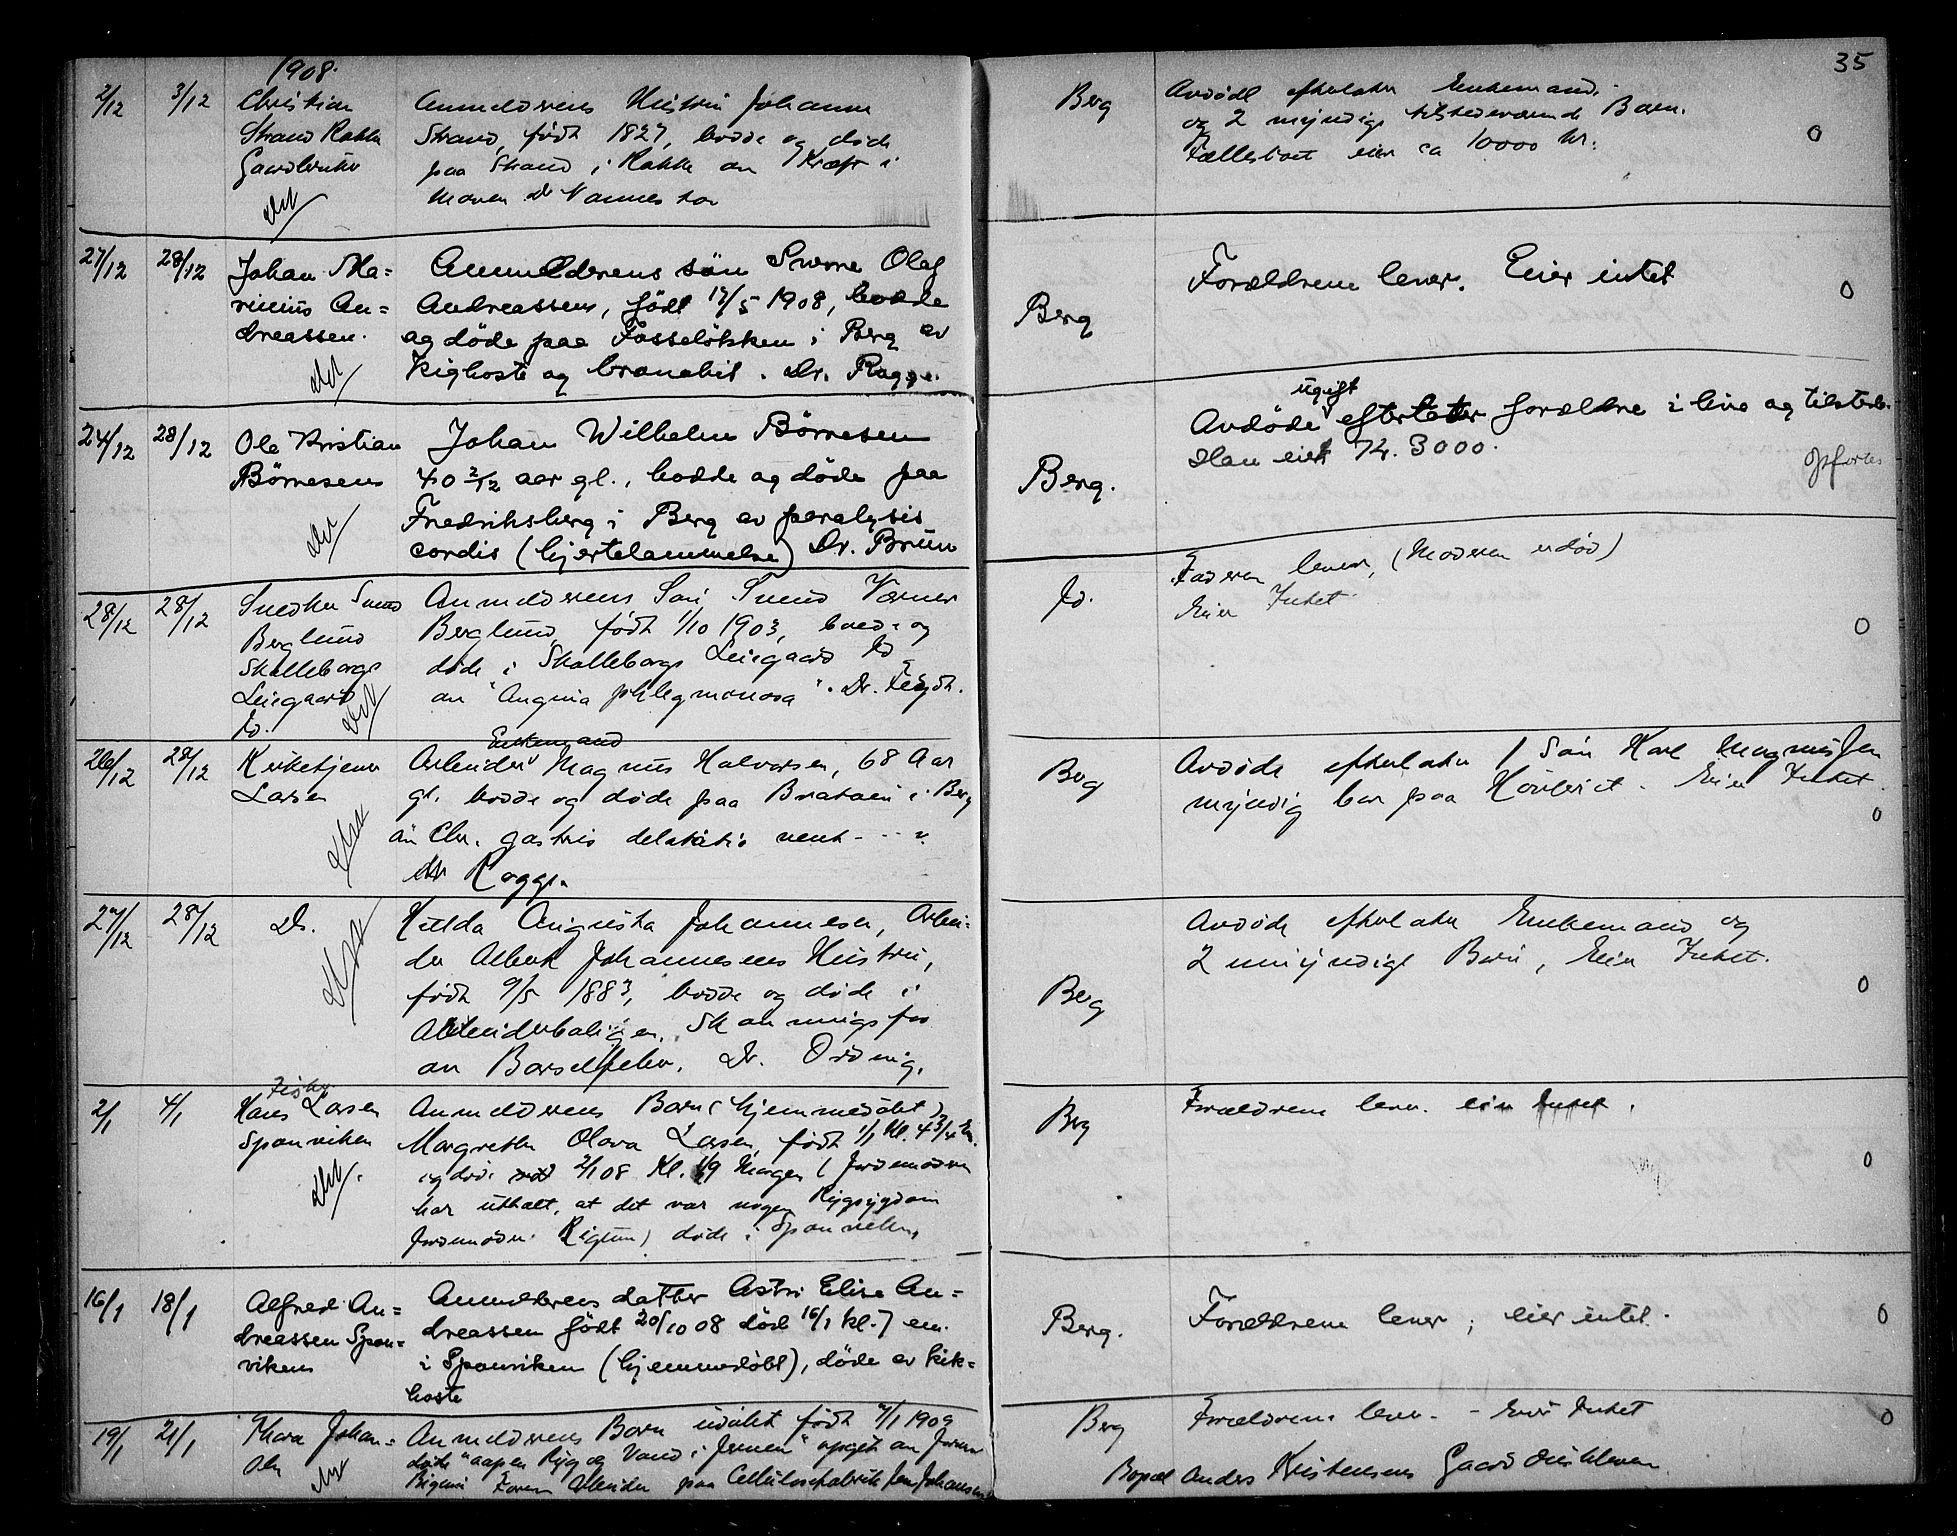 35
1908.
2/12 3/12 Christian Anmelderens Hustru Johanne
Strand Rakke Strand, født 1827, bodde og døde
Gaardbruker paa Strand i Rakke av Kræft i
Maven Dr
Berg Avdøde efterlater Enkemand
og 2 myndige tilstedeværende Barn.
Fællesboet eier ca 10000 kr. 0
27/12 28/12 Johan Ma= Anmelderens søn Sverre Olaf
rinius An= Andreassen, født 1908, bodde
dreassen. og døde paa Fosseløkken i Berg av
Kighoste og bronchit. Dr. Rogge.
Berg Forældrene lever. Eier intet 0
24/12 28/12 Ole Kristian Johan Wilhelm Børresen
Børresen 40 2/12 aar gl., bodde og døde paa
Fredriksberg i Berg av paralysis
cordis (hjertelammelse) Dr. Bruun
ugift
Berg. Avdøde efterlater forældre i live og tilstede.
Han eier Kr. 3000.
28/12 28/12 Snedker Svend Anmelderens Søn Svend Verner
Berglund Berglund, født 1/10 1903, boede og
Skalleborgs døde i Skalleborgs Leiegaard Id
Leiegaard av "Angina phlegmonosa". Dr.
Id.
Id. Faderen lever, (Moderen er død)
Eier Intet 0
Enkemand
26/12 28/12 Kirketjener Arbeider Magnus Halvorsen, 68 Aar
Larsen gl. bodde og døde paa i Berg
av Chr. gastris
Dr Rogge.
Berg Avdøde efterlater 1 Søn Karl Magnussen
myndig bor paa Eier Intet. 0
27/12 28/12 Do. Hulda Augusta Johannesen, Arbei=
der Albert Johannesens Hustru,
født 9/5 1883, bodde og døde i
Arbeiderboligen,
av Barselfeber. Dr. Ording.
Berg Avdøde efterlater Enkemand og
2 umyndige Børn, Eier Intet. 0
2/1 4/1 Hans Larsen Anmelderens Barn (hjemmedøbt)
Sponviken Margrethe Olava Larsen, født 1/1 Kl. 4 3/4 Em.
og døde 2/1 08 Kl. Morgen (Jordemoderen
har uttalt, at det var nogen Rygsygdom
Jordemoder døde i Sponviken,
Berg Forældrene lever. eier intet. 0
16/1 18/1 Alfred An= Anmelderens datter Astri Elise An=
dreassen Spon= dreassen født 20/10 08 død 16/1 kl. 7 em.
viken i Sponviken (hjemmedøbt), døde av kik=
hoste
Berg. Forældrene lever, eier intet. 0
19/1 21/1 Thora Johan= Anmelderens Barn udøbt født 1909
døde "aapen Ryg og Vand i Jernen" opgit av
Arbeider paa Cellulosefabrik Jens Johansen
Berg Forældrene lever. - Eier Intet 0
Bopæl Anders Kristensens Gaard